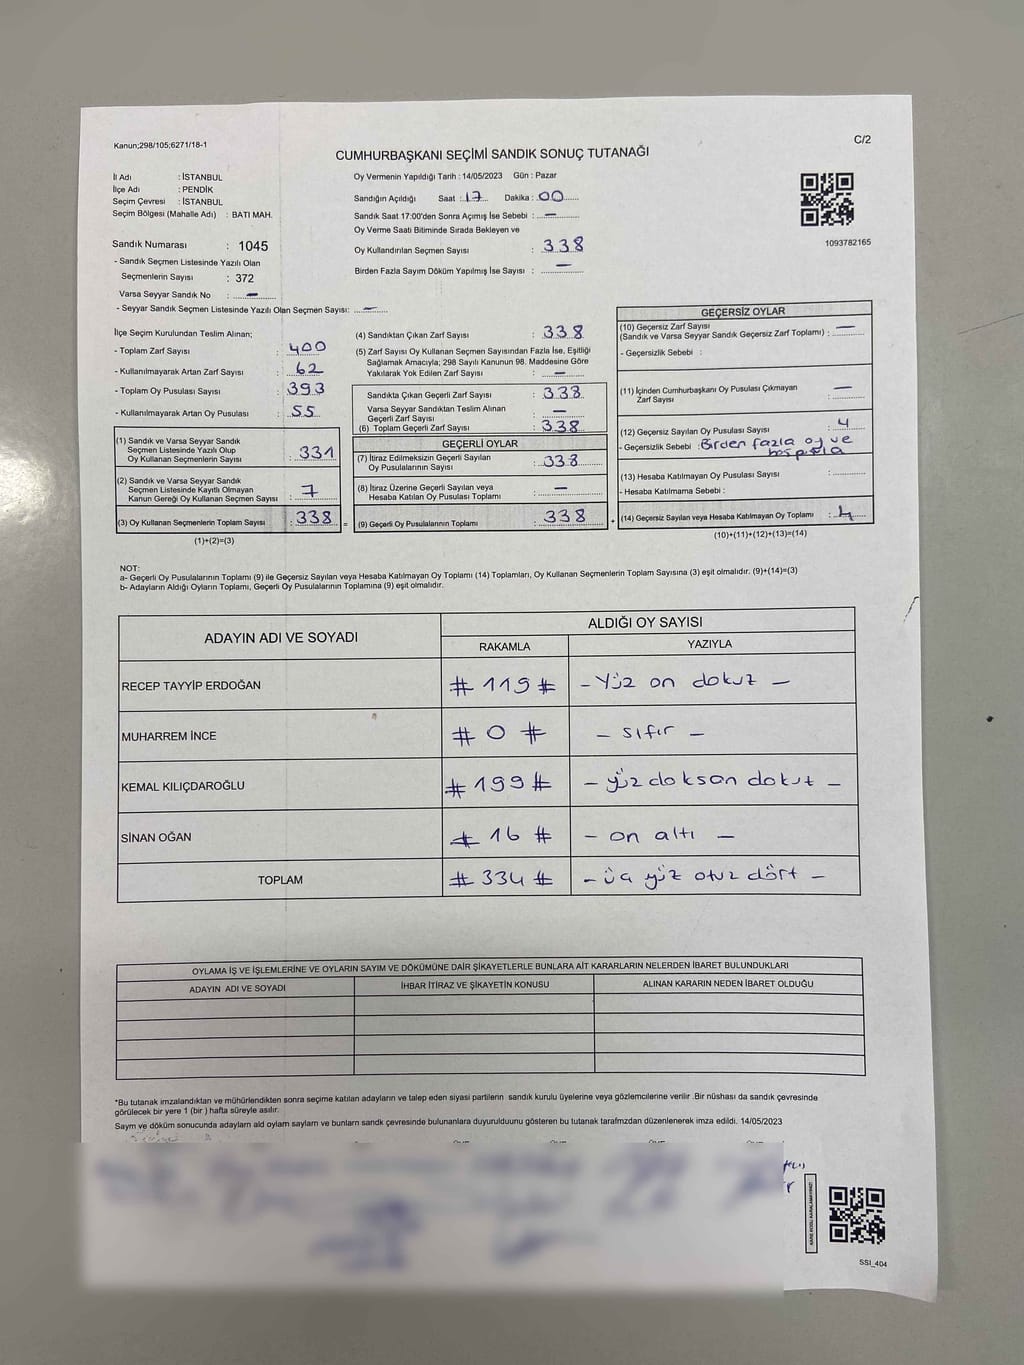 Kanun;298/105;6271/18-1
C/2
CUMHURBAŞKANI SEÇİMİ SANDIK SONUÇ TUTANAĞI
İl Adı : İSTANBUL
İlçe Adı : PENDİK
Seçim Çevresi : İSTANBUL
Seçim Bölgesi (Mahalle Adı) : BATI MAH.
Sandık Numarası : 1045
- Sandık Seçmen Listesinde Yazılı Olan
Seçmenlerin Sayısı : 372
Varsa Seyyar Sandık No : —
- Seyyar Sandık Seçmen Listesinde Yazılı Olan Seçmen Sayısı: —
Oy Vermenin Yapıldığı Tarih : 14/05/2023 Gün : Pazar
Sandığın Açıldığı Saat : 17 Dakika : 00
Sandık Saat 17:00'den Sonra Açımış İse Sebebi : —
Oy Verme Saati Bitiminde Sırada Bekleyen ve
Oy Kullandırılan Seçmen Sayısı : 338
Birden Fazla Sayım Döküm Yapılmış İse Sayısı : —
1093782165
İlçe Seçim Kurulundan Teslim Alınan;
- Toplam Zarf Sayısı : 400
- Kullanılmayarak Artan Zarf Sayısı : 62
- Toplam Oy Pusulası Sayısı : 393
- Kullanılmayarak Artan Oy Pusulası : 55
(1) Sandık ve Varsa Seyyar Sandık
Seçmen Listesinde Yazılı Olup
Oy Kullanan Seçmenlerin Sayısı : 331
(2) Sandık ve Varsa Seyyar Sandık
Seçmen Listesinde Kayıtlı Olmayan
Kanun Gereği Oy Kullanan Seçmen Sayısı : 7
(3) Oy Kullanan Seçmenlerin Toplam Sayısı : 338 =
(1)+(2)=(3)
(4) Sandıktan Çıkan Zarf Sayısı : 338
(5) Zarf Sayısı Oy Kullanan Seçmen Sayısından Fazla İse, Eşitliği
Sağlamak Amacıyla; 298 Sayılı Kanunun 98. Maddesine Göre
Yakılarak Yok Edilen Zarf Sayısı : —
Sandıkta Çıkan Geçerli Zarf Sayısı : 338
Varsa Seyyar Sandıktan Teslim Alınan
Geçerli Zarf Sayısı : —
(6) Toplam Geçerli Zarf Sayısı : 338
GEÇERLİ OYLAR
(7) İtiraz Edilmeksizin Geçerli Sayılan
Oy Pusulalarının Sayısı : 338
(8) İtiraz Üzerine Geçerli Sayılan veya
Hesaba Katılan Oy Pusulası Toplamı : —
(9) Geçerli Oy Pusulalarının Toplamı : 338 +
GEÇERSİZ OYLAR
(10) Geçersiz Zarf Sayısı
(Sandık ve Varsa Seyyar Sandık Geçersiz Zarf Toplamı) : —
- Geçersizlik Sebebi :
(11) İçinden Cumhurbaşkanı Oy Pusulası Çıkmayan
Zarf Sayısı : —
(12) Geçersiz Sayılan Oy Pusulası Sayısı : 4
- Geçersizlik Sebebi : Birden fazla oy ve
(13) Hesaba Katılmayan Oy Pusulası Sayısı :
- Hesaba Katılmama Sebebi :
(14) Geçersiz Sayılan veya Hesaba Katılmayan Oy Toplamı : 4
(10)+(11)+(12)+(13)=(14)
NOT:
a- Geçerli Oy Pusulalarının Toplamı (9) ile Geçersiz Sayılan veya Hesaba Katılmayan Oy Toplamı (14) Toplamları, Oy Kullanan Seçmenlerin Toplam Sayısına (3) eşit olmalıdır. (9)+(14)=(3)
b- Adayların Aldığı Oyların Toplamı, Geçerli Oy Pusulalarının Toplamına (9) eşit olmalıdır.
ADAYIN ADI VE SOYADI
ALDIĞI OY SAYISI
RAKAMLA YAZIYLA
RECEP TAYYİP ERDOĞAN # 119 # - Yüz on dokuz -
MUHARREM İNCE # 0 # - sıfır -
KEMAL KILIÇDAROĞLU # 199 # - yüz doksan dokuz -
SİNAN OĞAN # 16 # - on altı -
TOPLAM # 334 # - üç yüz otuz dört -
OYLAMA İŞ VE İŞLEMLERİNE VE OYLARIN SAYIM VE DÖKÜMÜNE DAİR ŞİKAYETLERLE BUNLARA AİT KARARLARIN NELERDEN İBARET BULUNDUKLARI
ADAYIN ADI VE SOYADI İHBAR İTİRAZ VE ŞİKAYETİN KONUSU ALINAN KARARIN NEDEN İBARET OLDUĞU
*Bu tutanak imzalandıktan ve mühürlendikten sonra seçime katılan adayların ve talep eden siyasi partilerin sandık kurulu üyelerine veya gözlemcilerine verilir .Bir nüshası da sandık çevresinde
görülecek bir yere 1 (bir ) hafta süreyle asılır.
Saym ve döküm sonucunda adayların ald oylam saylam ve bunların sandk çevresinde bulunanlara duyurulduunu gösteren bu tutanak tarafmzdan düzenlenerek imza edildi. 14/05/2023
SSI_404